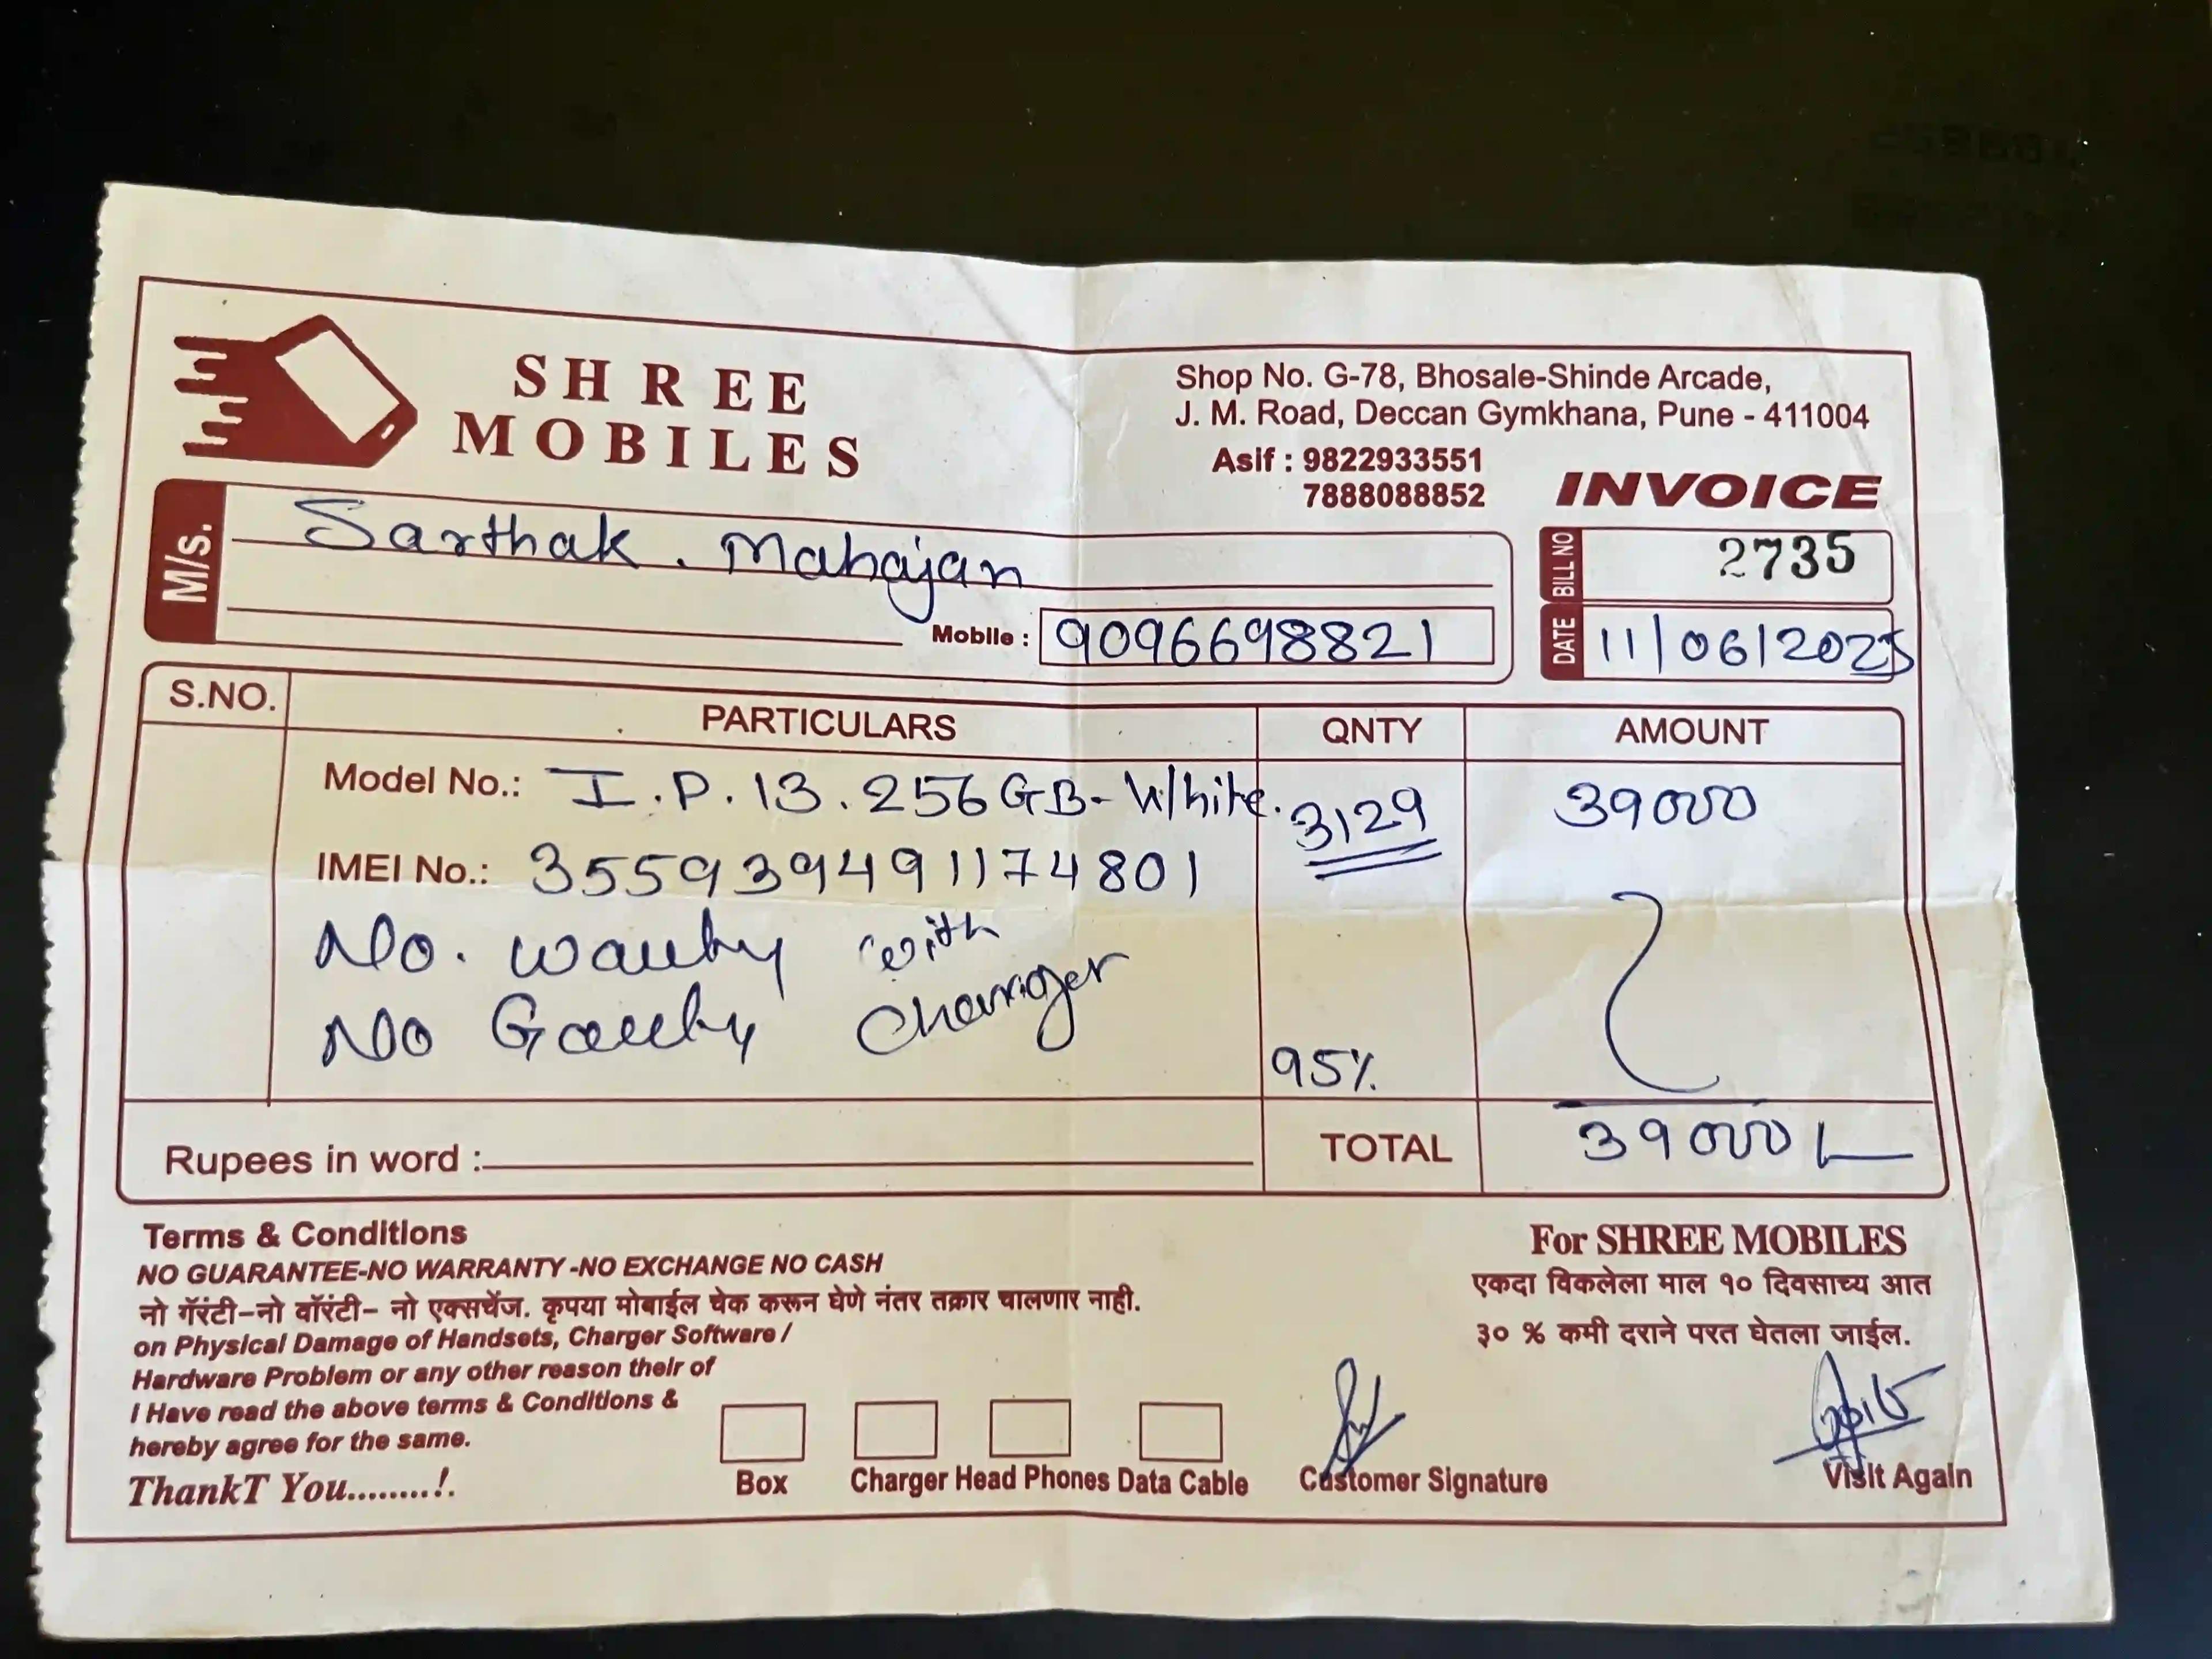 SHREE
MOBILES
Shop No. G-78, Bhosale-Shinde Arcade,
J. M. Road, Deccan Gymkhana, Pune - 411004
Asif : 9822933551
7888088852
INVOICE
M/s. Sarthak . Mahajan
BILL NO 2735
Mobile : 9096698821
DATE 11/06/2025
S.NO. PARTICULARS QNTY AMOUNT
Model No.: I.P.13.256GB-White. 3129 39000
IMEI No.: 355939491174801
No. with
No Charger
95%
Rupees in word : TOTAL 39000
Terms & Conditions
NO GUARANTEE-NO WARRANTY -NO EXCHANGE NO CASH
नो गॅरंटी-नो वॉरंटी- नो एक्सचेंज. कृपया मोबाईल चेक करून घेणे नंतर तक्रार चालणार नाही.
on Physical Damage of Handsets, Charger Software /
Hardware Problem or any other reason their of
I Have read the above terms & Conditions &
hereby agree for the same.
ThankT You........!.
For SHREE MOBILES
एकदा विकलेला माल १० दिवसाच्य आत
३० % कमी दराने परत घेतला जाईल.
Box Charger Head Phones Data Cable Customer Signature Visit Again